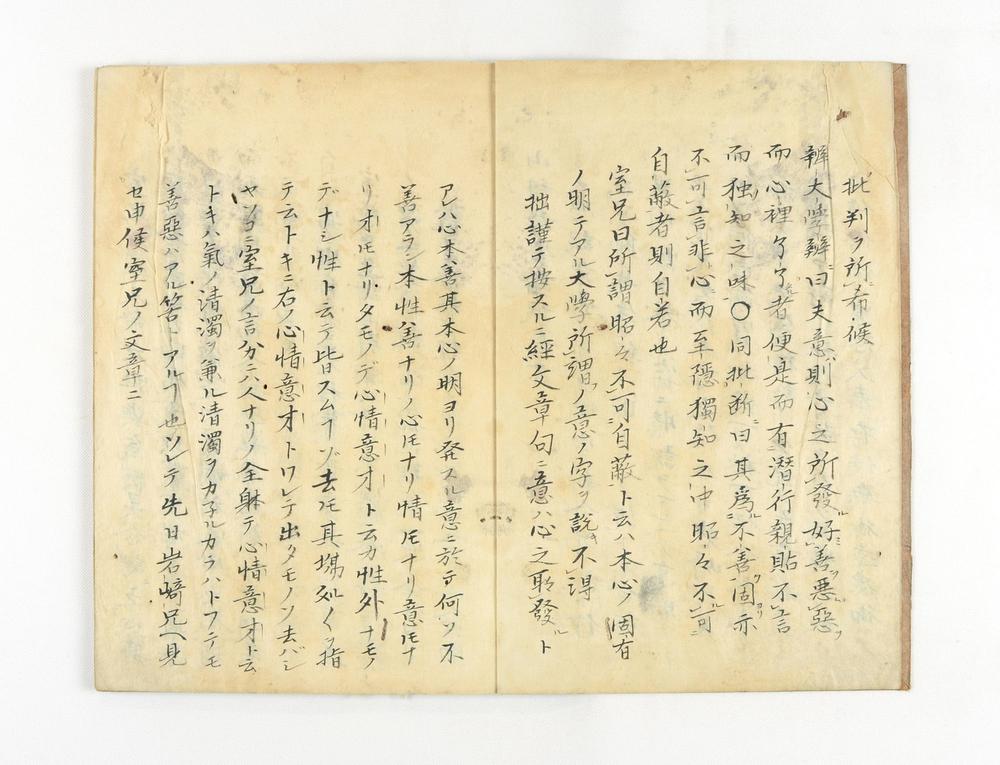 批判ヲ所希候
辨大學辨曰夫意則心之所發好善惡惡
而心裡了了者便是而有潛行親貼不言
而独知之味〇同批断曰其爲不善固亦
不可言非心而至隱獨知之中昭々不可
自蔽者則自若也
室兄曰所謂昭々不可自蔽ト云ハ本心ノ固有
ノ明テアル大學所謂ノ意ノ字ヲ説不得
拙謹テ按スルニ經文章句ニ意ハ心之所發ト
アレハ心本善其本心ノ明ヨリ発スル意ニ於テ何ソ不
善アラン本性善ナリノ心ニモナリ情ニモナリ意ニモナ
リオニモナリタモノデ心情意才ト云カ性外ナモノ
デナシ性ト云テ皆スムフゾ去ニモ其塲処々ヲ指
テ云トキニ右ノ心情意才トワレテ出タモノソ去バシ
ヤソコニ室兄ノ言分ニハ人ナリノ全躰テ心情意才ト云
トキハ氣ノ清濁ヲ兼ル清濁ヲカヌルカラハトフテモ
善惡ハアル筈トアルフ也ソレテ先日岩﨑兄ヘ見
セ申候室兄ノ文章ニ